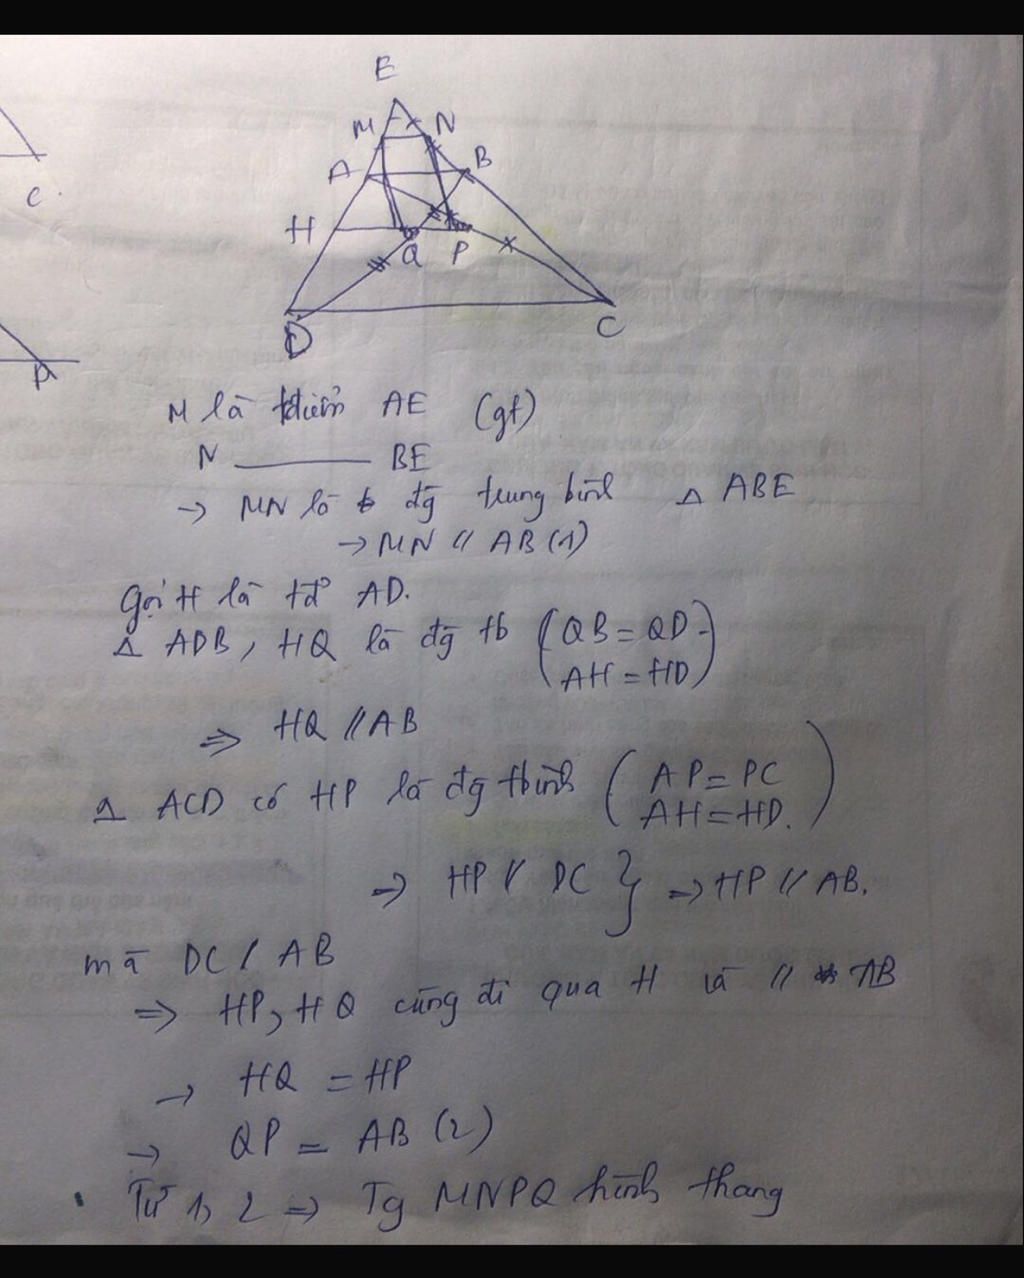 E
M N
A B
H
Q P
D C
C.
P
M là tđiểm AE (gt)
N ——— BE
→ MN là đg trung bình △ ABE
→ MN // AB (1)
Gọi H là tđ AD.
△ ADB, HQ là đg tb (QB = QD
AH = HD)
⇒ HQ // AB
△ ACD có HP là đg tbình (AP = PC
AH = HD.)
⇒ HP // DC } ⇒ HP // AB.
mà DC / AB
⇒ HP, HQ cùng đi qua H và // AB
→ HQ = HP
→ QP = AB (2)
Từ 1, 2 ⇒ Tg MNPQ hình thang